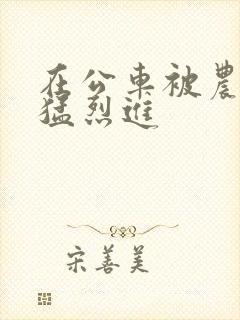 在公車被農
猛烈進
宋善美